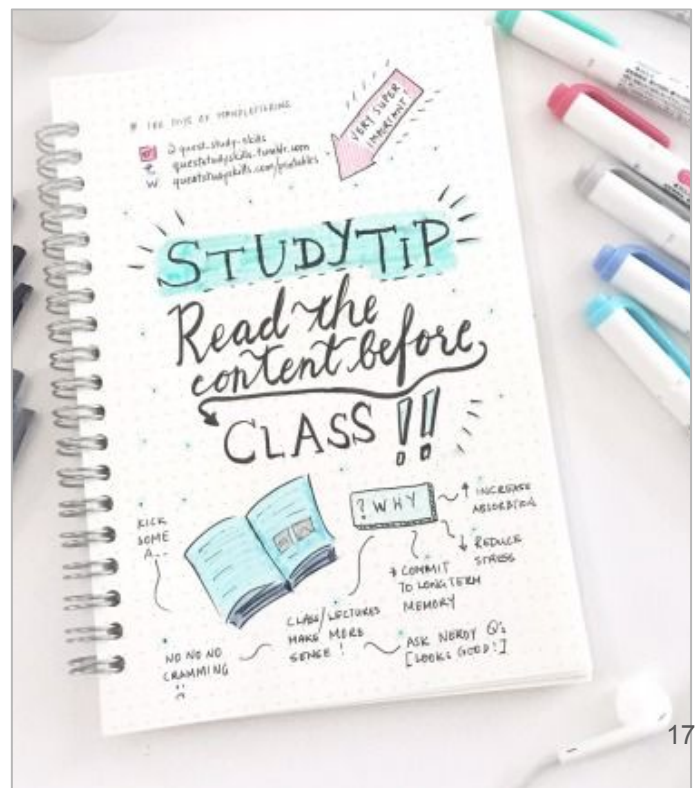 # 100 DAYS OF HANDLETTERING
@ quest.study.skills
t queststudyskills.tumblr.com
W queststudyskills.com/printables
VERY SUPER
IMPORTANT!
STUDY TIP
Read the
content before
CLASS !!
? WHY
↑ INCREASE
ABSORBTION
↓ REDUCE
STRESS
* COMMIT
TO LONG TERM
MEMORY
KICK
SOME
A...
CLASS/LECTURES
MAKE MORE
SENSE !
ASK NERDY Q's
[LOOKS GOOD!]
NO NO NO
CRAMMING
!!
17